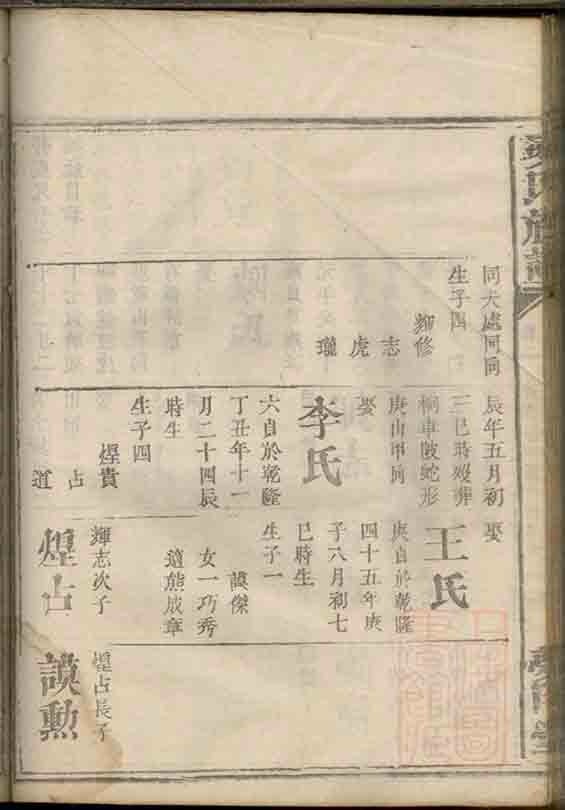 氏族譜
同夫處同向
生子四
輝修
志
虎
瓏
辰年五月初
三巳時歿葬
桐車陂蛇形
庚山甲向
娶
李氏
六自於乾隆
丁丑年十一
月二十四辰
時生
生子四
煌貴
占
道
娶
王氏
庚自於乾隆
四十五年庚
子八月初七
巳時生
生子一
謨傑
女一巧秀
適熊成章
輝志次子
煌占
煌占長子
謨勲